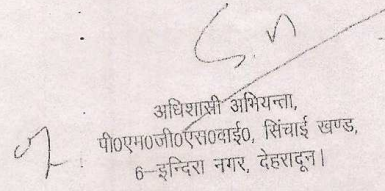 अधिशासी अभियन्ता,
पी0एम0जी0एस0वाई0, सिंचाई खण्ड,
6–इन्दिरा नगर, देहरादून।